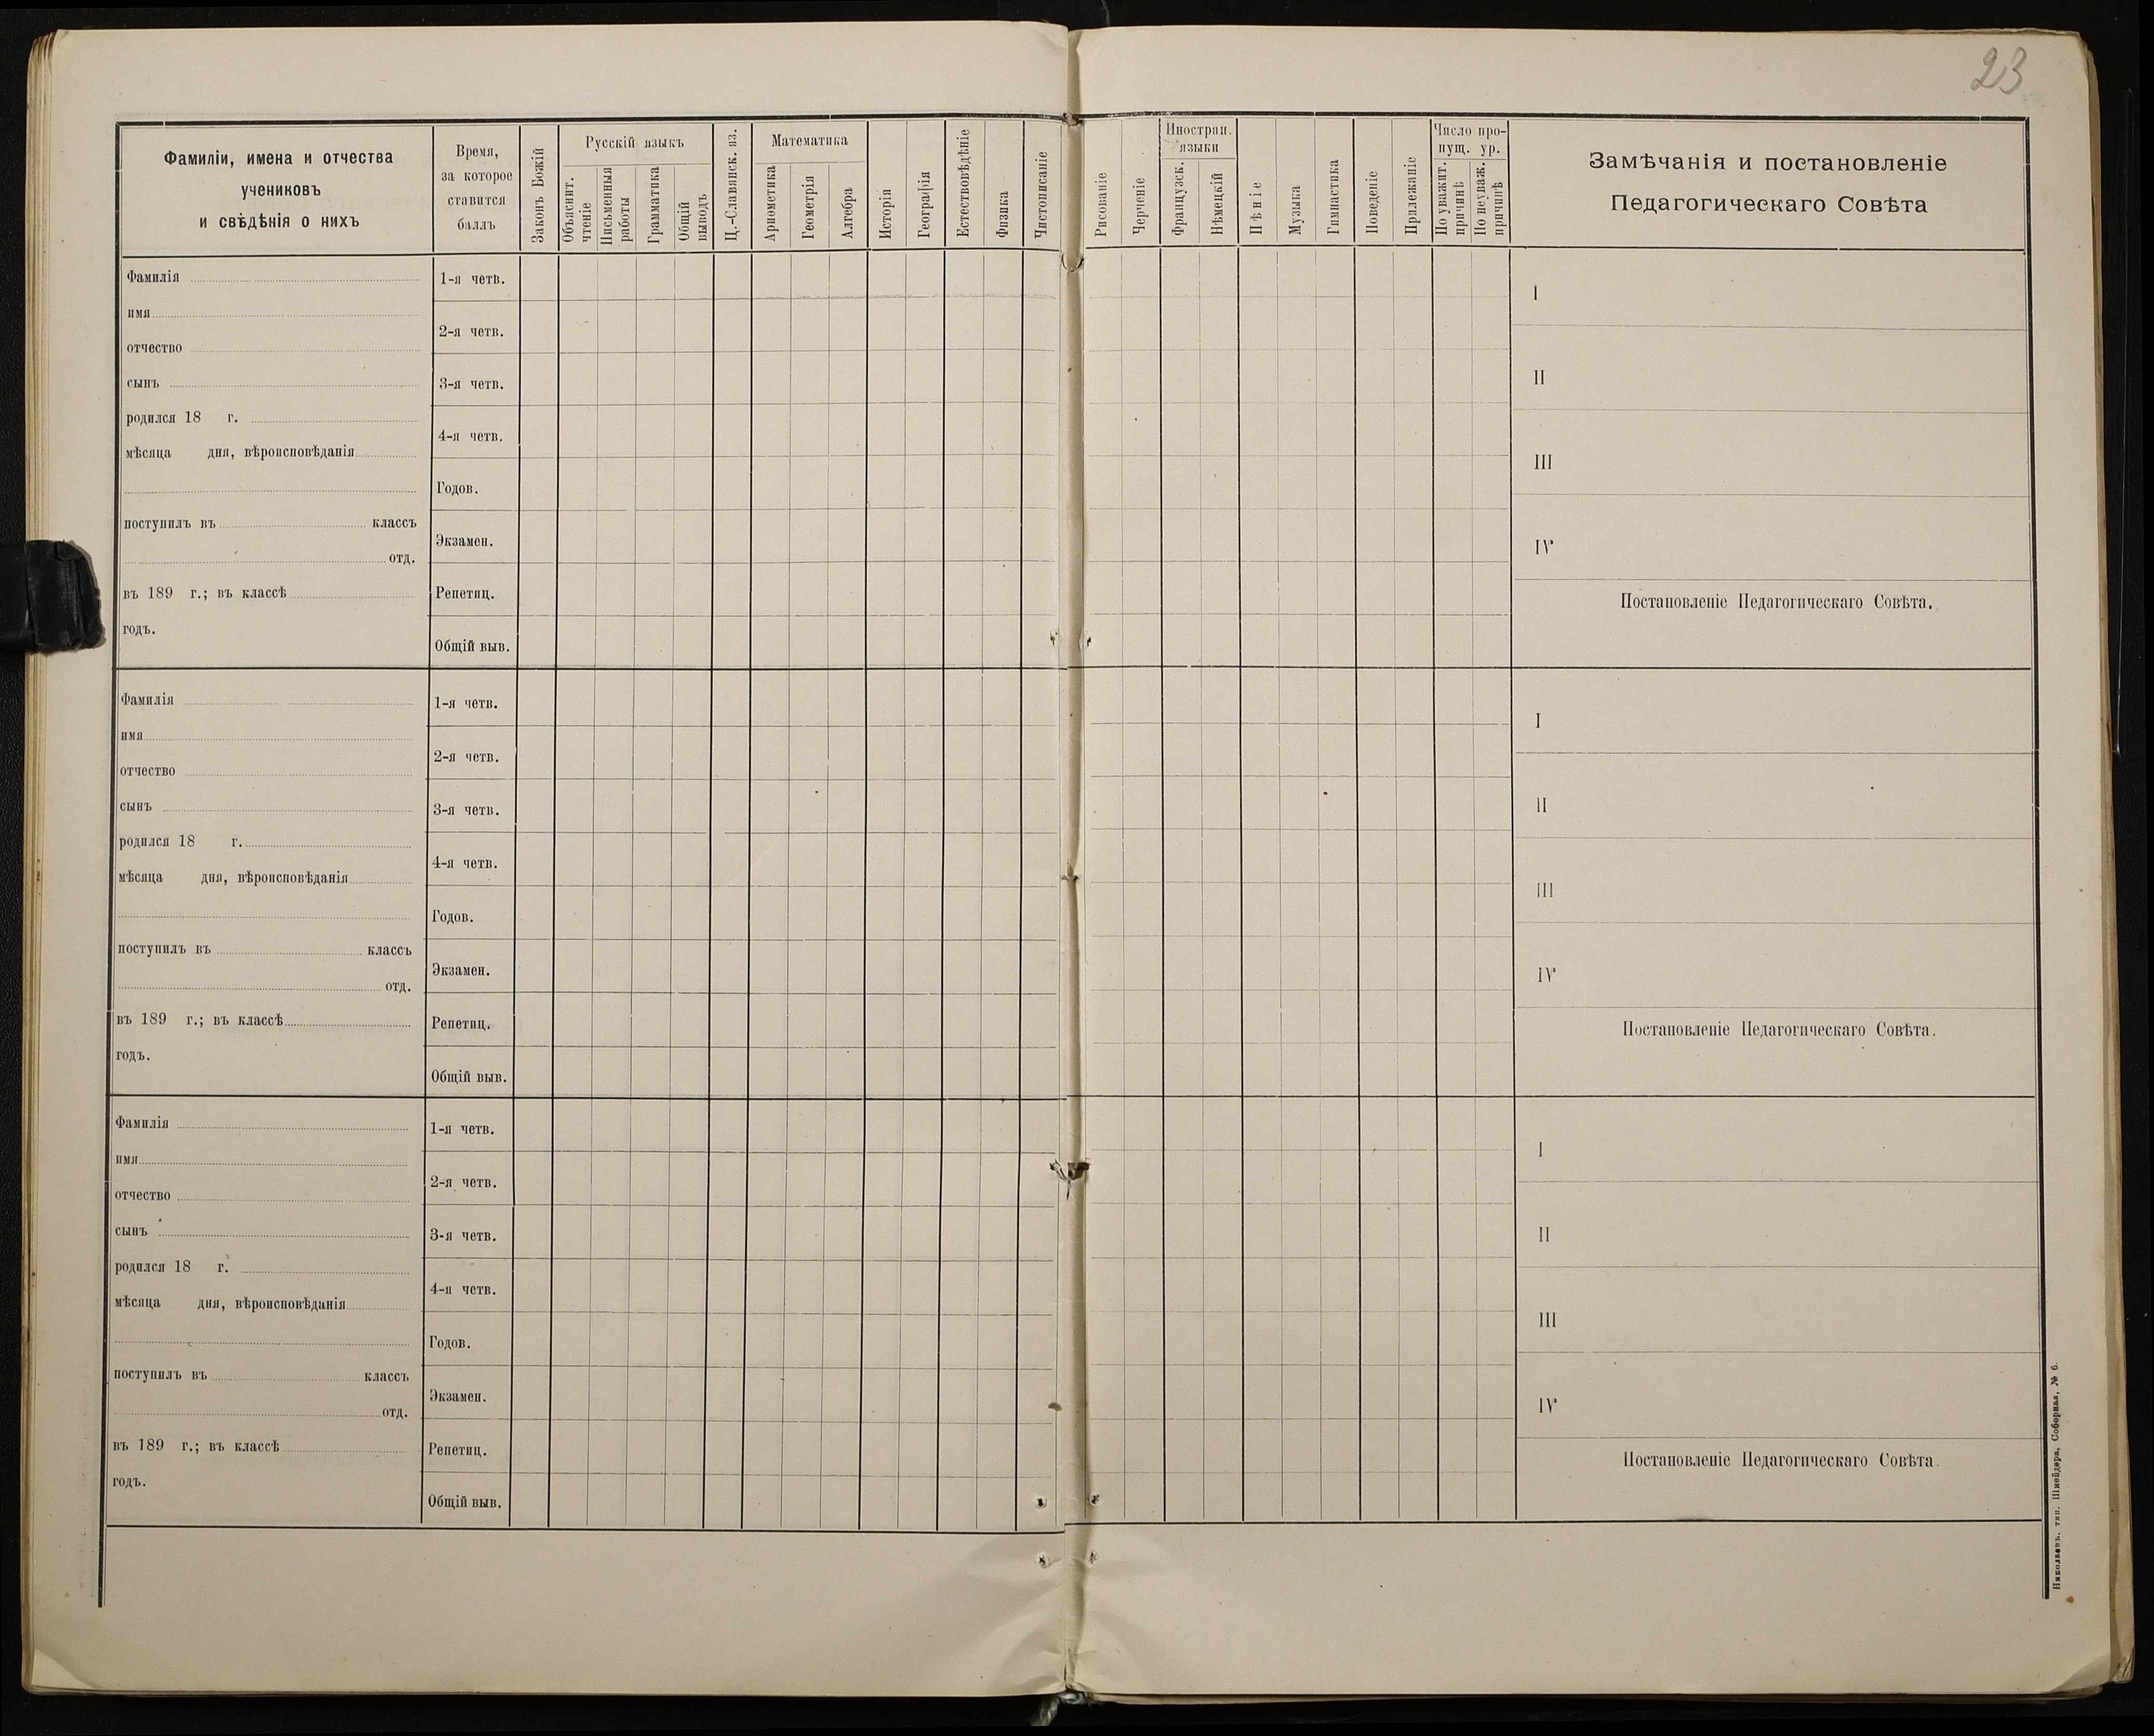 23
Фамиліи, имена и отчества
учениковъ
и свѣдѣнія о нихъ
Время,
за которое
ставится
баллъ
Законъ Божій
Русскій языкъ
Объяснит.
чтеніе
Письменныя
работы
Грамматика
Общій
выводъ
Ц.-Славянск. яз.
Математика
Ариѳметика
Геометрія
Алгебра
Исторія
Географія
Естествовѣдѣніе
Физика
Чистописаніе
Рисованіе
Черченіе
Иностран.
языки
Французск.
Нѣмецкій
Пѣніе
Музыка
Гимнастика
Поведеніе
Прилежаніе
Число про-
пущ. ур.
По уважит.
причинѣ
По неуваж.
причинѣ
Замѣчанія и постановленіе
Педагогическаго Совѣта
Фамилія
имя
отчество
сынъ
родился 18 г.
мѣсяца дня, вѣроисповѣданія
поступилъ въ классъ
отд.
въ 189 г.; въ классѣ
годъ.
1-я четв.
2-я четв.
3-я четв.
4-я четв.
Годов.
Экзамен.
Репетиц.
Общій выв.
I
II
III
IV
Постановленіе Педагогическаго Совѣта.
Фамилія
имя
отчество
сынъ
родился 18 г.
мѣсяца дня, вѣроисповѣданія
поступилъ въ классъ
отд.
въ 189 г.; въ классѣ
годъ.
1-я четв.
2-я четв.
3-я четв.
4-я четв.
Годов.
Экзамен.
Репетиц.
Общій выв.
I
II
III
IV
Постановленіе Педагогическаго Совѣта.
Фамилія
имя
отчество
сынъ
родился 18 г.
мѣсяца дня, вѣроисповѣданія
поступилъ въ классъ
отд.
въ 189 г.; въ классѣ
годъ.
1-я четв.
2-я четв.
3-я четв.
4-я четв.
Годов.
Экзамен.
Репетиц.
Общій выв.
I
II
III
IV
Постановленіе Педагогическаго Совѣта.
Николаевъ, тип. Шнейдера, Соборная, № 6.